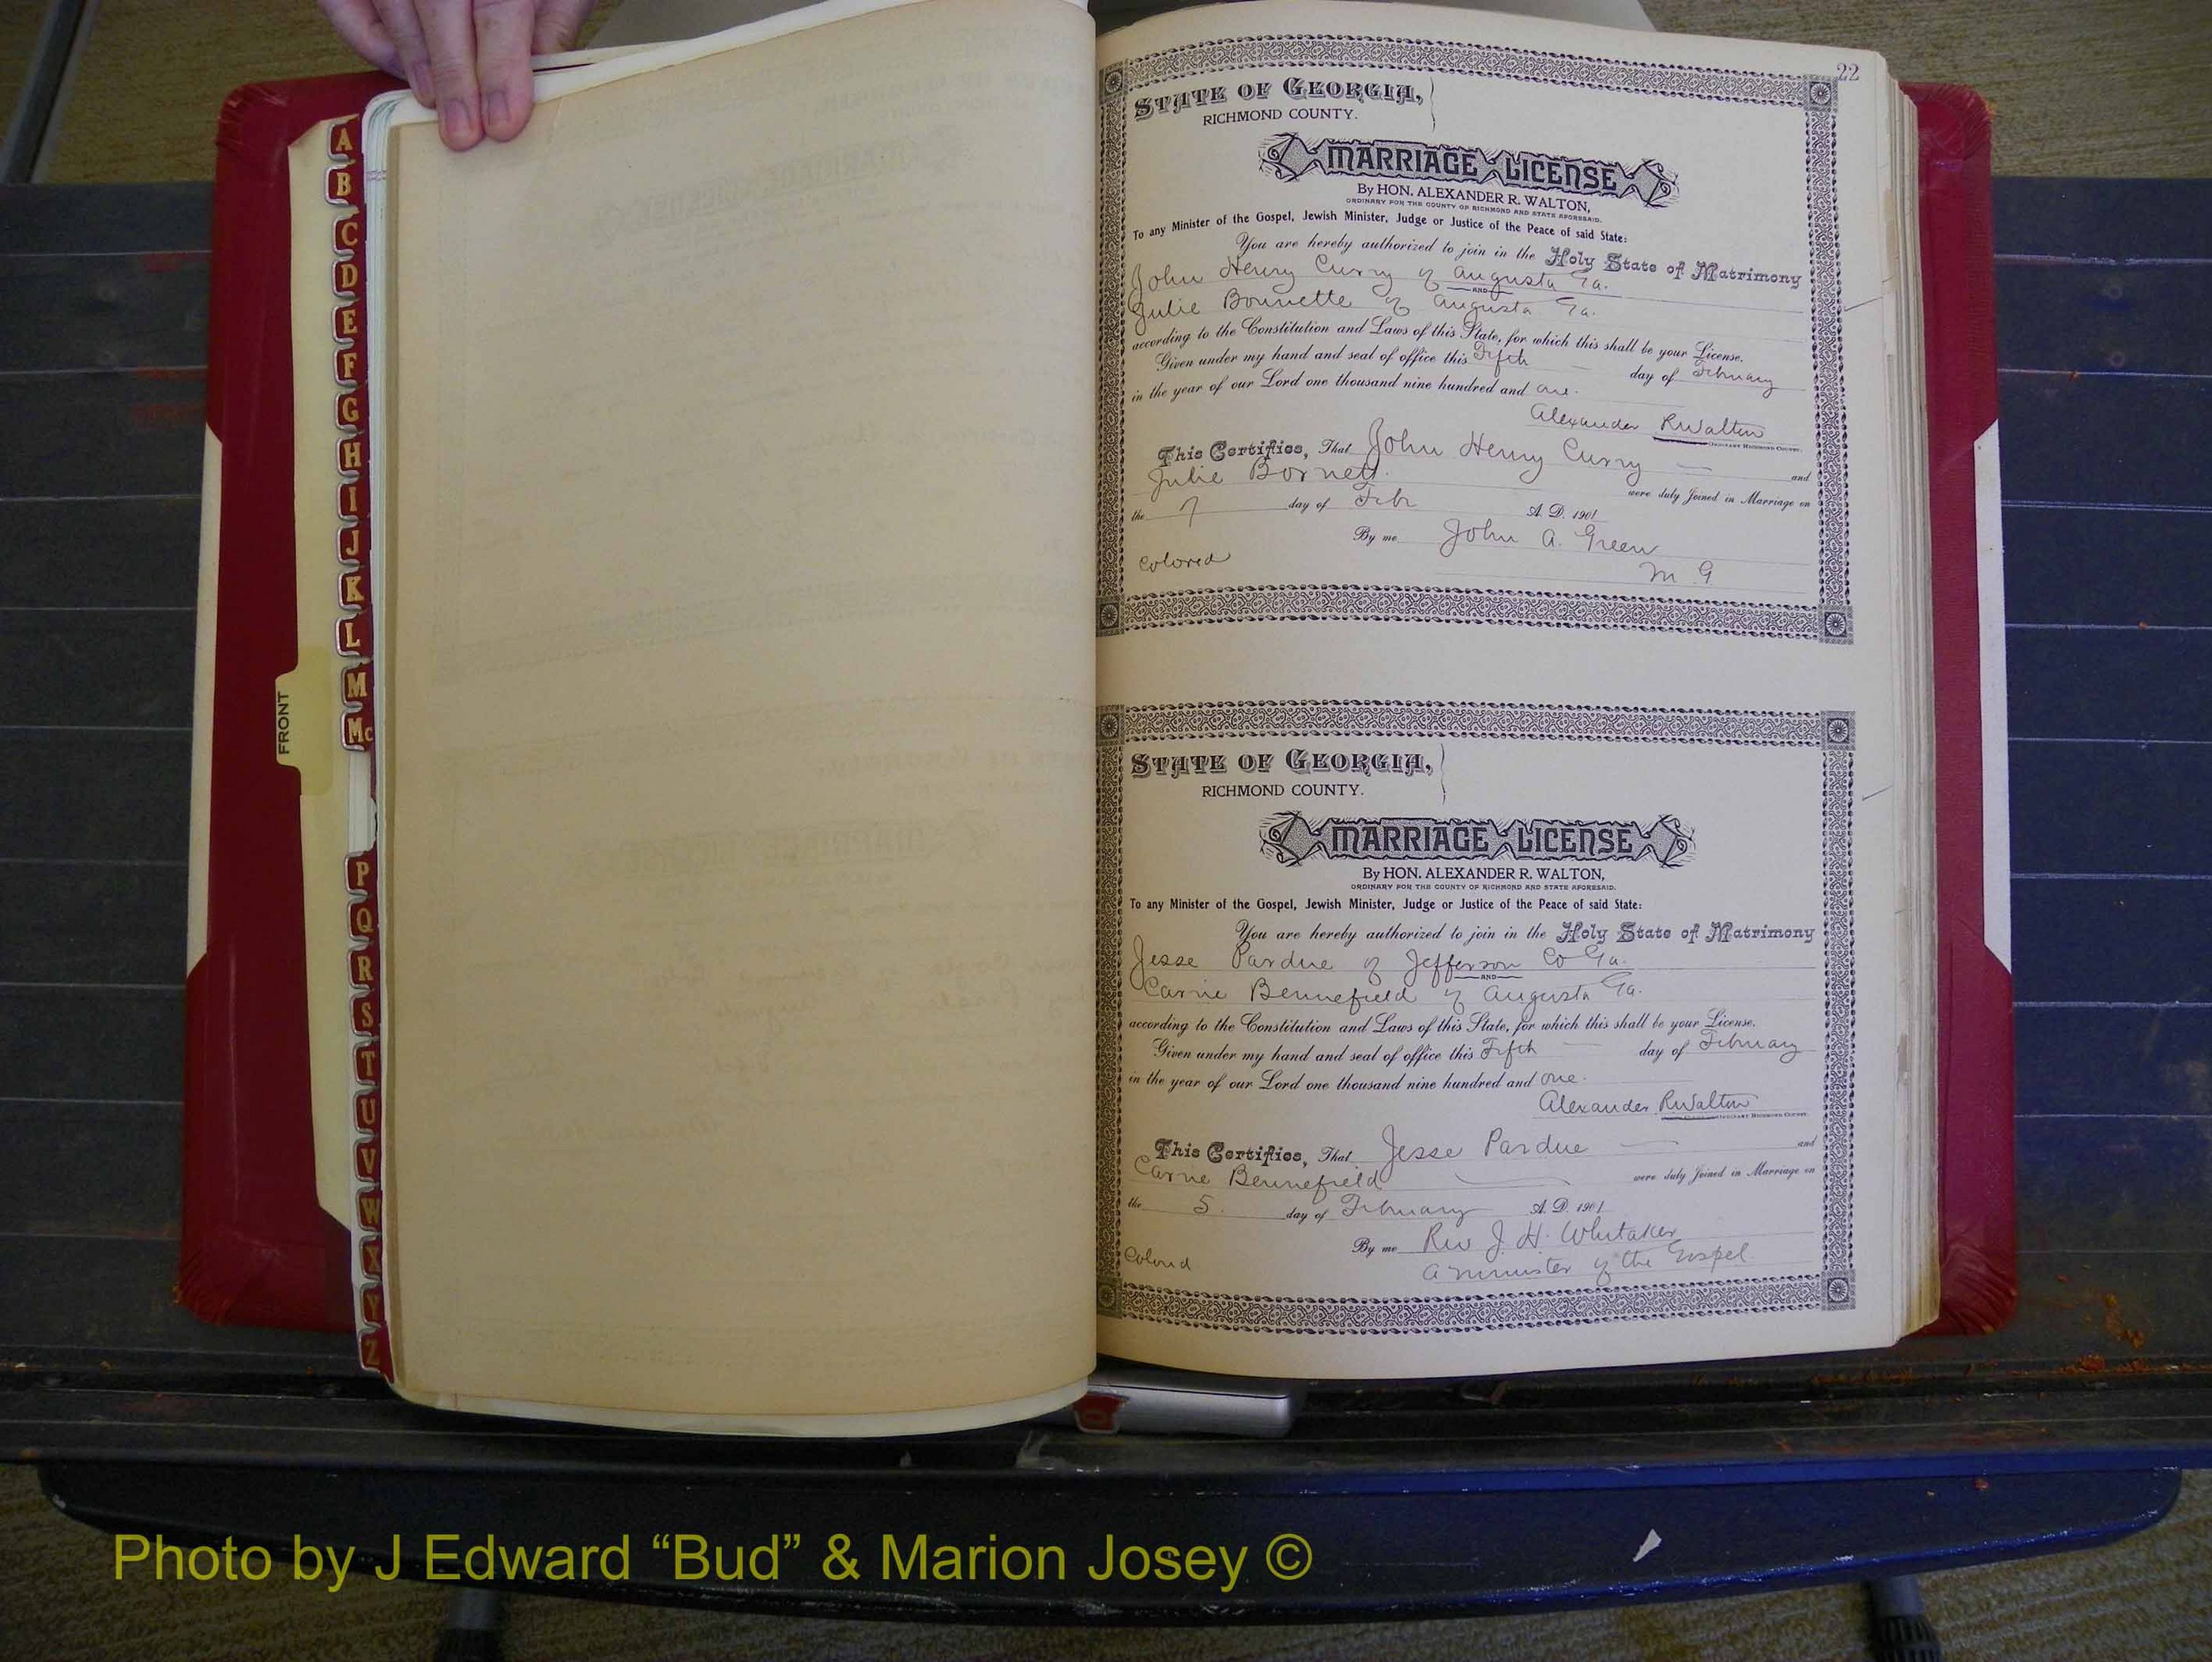 A
B
C
D
E
F
G
H
I
J
K
L
M
Mc
P
Q
R
S
T
U
V
W
X
Y
Z
FRONT
22
STATE OF GEORGIA,
RICHMOND COUNTY.
MARRIAGE LICENSE
By HON. ALEXANDER R. WALTON,
ORDINARY FOR THE COUNTY OF RICHMOND AND STATE AFORESAID.
To any Minister of the Gospel, Jewish Minister, Judge or Justice of the Peace of said State:
You are hereby authorized to join in the Holy State of Matrimony
John Henry Curry of Augusta Ga.
AND
Julie Bonnette of Augusta Ga.
according to the Constitution and Laws of this State, for which this shall be your License.
Given under my hand and seal of office this Fifth day of February
in the year of our Lord one thousand nine hundred and one.
Alexander R Walton
ORDINARY RICHMOND COUNTY.
This Certifies, That John Henry Curry and
Julie Bornett. were duly Joined in Marriage on
the 7 day of Feb A. D. 1901
By me John A. Green
Colored M G
STATE OF GEORGIA,
RICHMOND COUNTY.
MARRIAGE LICENSE
By HON. ALEXANDER R. WALTON,
ORDINARY FOR THE COUNTY OF RICHMOND AND STATE AFORESAID.
To any Minister of the Gospel, Jewish Minister, Judge or Justice of the Peace of said State:
You are hereby authorized to join in the Holy State of Matrimony
Jesse Pardue of Jefferson Co Ga.
AND
Carrie Bennefield of Augusta Ga.
according to the Constitution and Laws of this State, for which this shall be your License.
Given under my hand and seal of office this Fifth day of February
in the year of our Lord one thousand nine hundred and one.
Alexander R Walton
ORDINARY RICHMOND COUNTY.
This Certifies, That Jesse Pardue and
Carrie Bennefield were duly Joined in Marriage on
the 5. day of February A. D. 1901
By me Rev J. H. Whitaker
Colored A minister of the Gospel.
Photo by J Edward “Bud” & Marion Josey ©